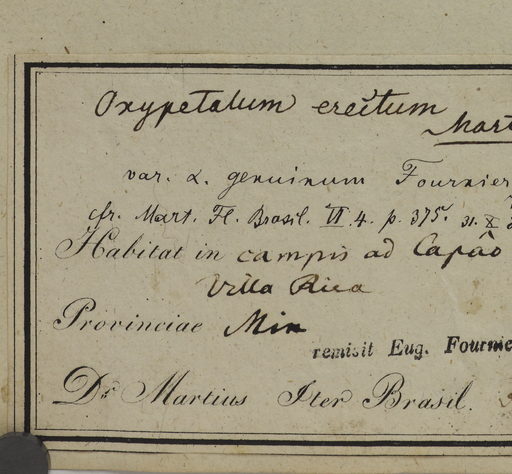 Oxypetalum erectum
Mart
var. α. genuinum Fournier
cfr. Mart. Fl. Brasil. VI. 4. p. 375. 31. X
Habitat in campis ad Capâo
Villa Rica
Provinciae Min
remisit Eug. Fournie
Dr. Martius Iter Brasil.